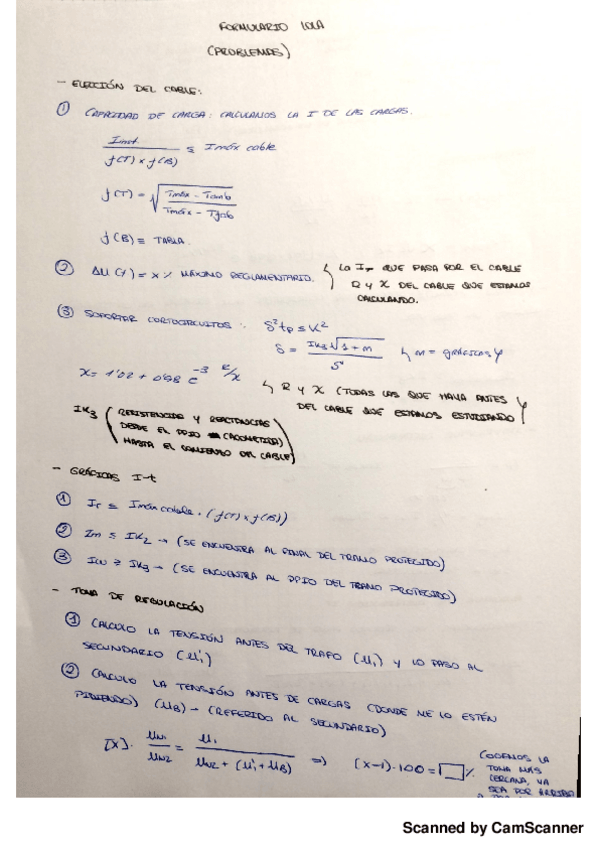 FORMULARIO LOLA
(PROBLEMAS)
- ELECCIÓN DEL CABLE:
① CAPACIDAD DE CARGA: CALCULAMOS LA I DE LAS CARGAS.
Iinst / f(T) x f(B) ≤ Imáx cable
f(T) = √(Tmáx - Tamb / Tmáx - Tfab)
f(B) ≡ TABLA.
② ΔU(%) = x% MÁXIMO REGLAMENTARIO. ↳ LA Ir QUE PASA POR EL CABLE
R y X DEL CABLE QUE ESTAMOS
CALCULANDO.
③ SOPORTAR CORTOCIRCUITOS: S²tp ≤ K²
S = IK3 √1+m / S ↳ m = GRÁFICAS
X = 1'02 + 0'98 e^-3 R/X
↳ R y X (TODAS LAS QUE HAYA ANTES
DEL CABLE QUE ESTAMOS ESTUDIANDO)
IK3 (RESISTENCIAS Y REACTANCIAS
DESDE EL PPIO (ACOMETIDA)
HASTA EL COMIENZO DEL CABLE)
- GRÁFICAS I-t
① Ir ≤ Imáx cable · (f(T) x f(B))
② Im ≤ IK2 → (SE ENCUENTRA AL FINAL DEL TRAMO PROTEGIDO)
③ Icu ≥ IK3 → (SE ENCUENTRA AL PPIO DEL TRAMO PROTEGIDO)
- TOMA DE REGULACIÓN
① CALCULO LA TENSIÓN ANTES DEL TRAFO (U₁) Y LO PASO AL
SECUNDARIO (U'₁)
② CALCULO LA TENSIÓN ANTES DE CARGAS (DONDE ME LO ESTÉN
PIDIENDO) (UB) → (REFERIDO AL SECUNDARIO)
[X] · UN1 / UN2 = U₁ / UN2 + (U'₁ + UB) ⇒ (X-1)·100 = □%
COGEMOS LA
TOMA MÁS
CERCANA, YA
SEA POR ARRIBA
Scanned by CamScanner